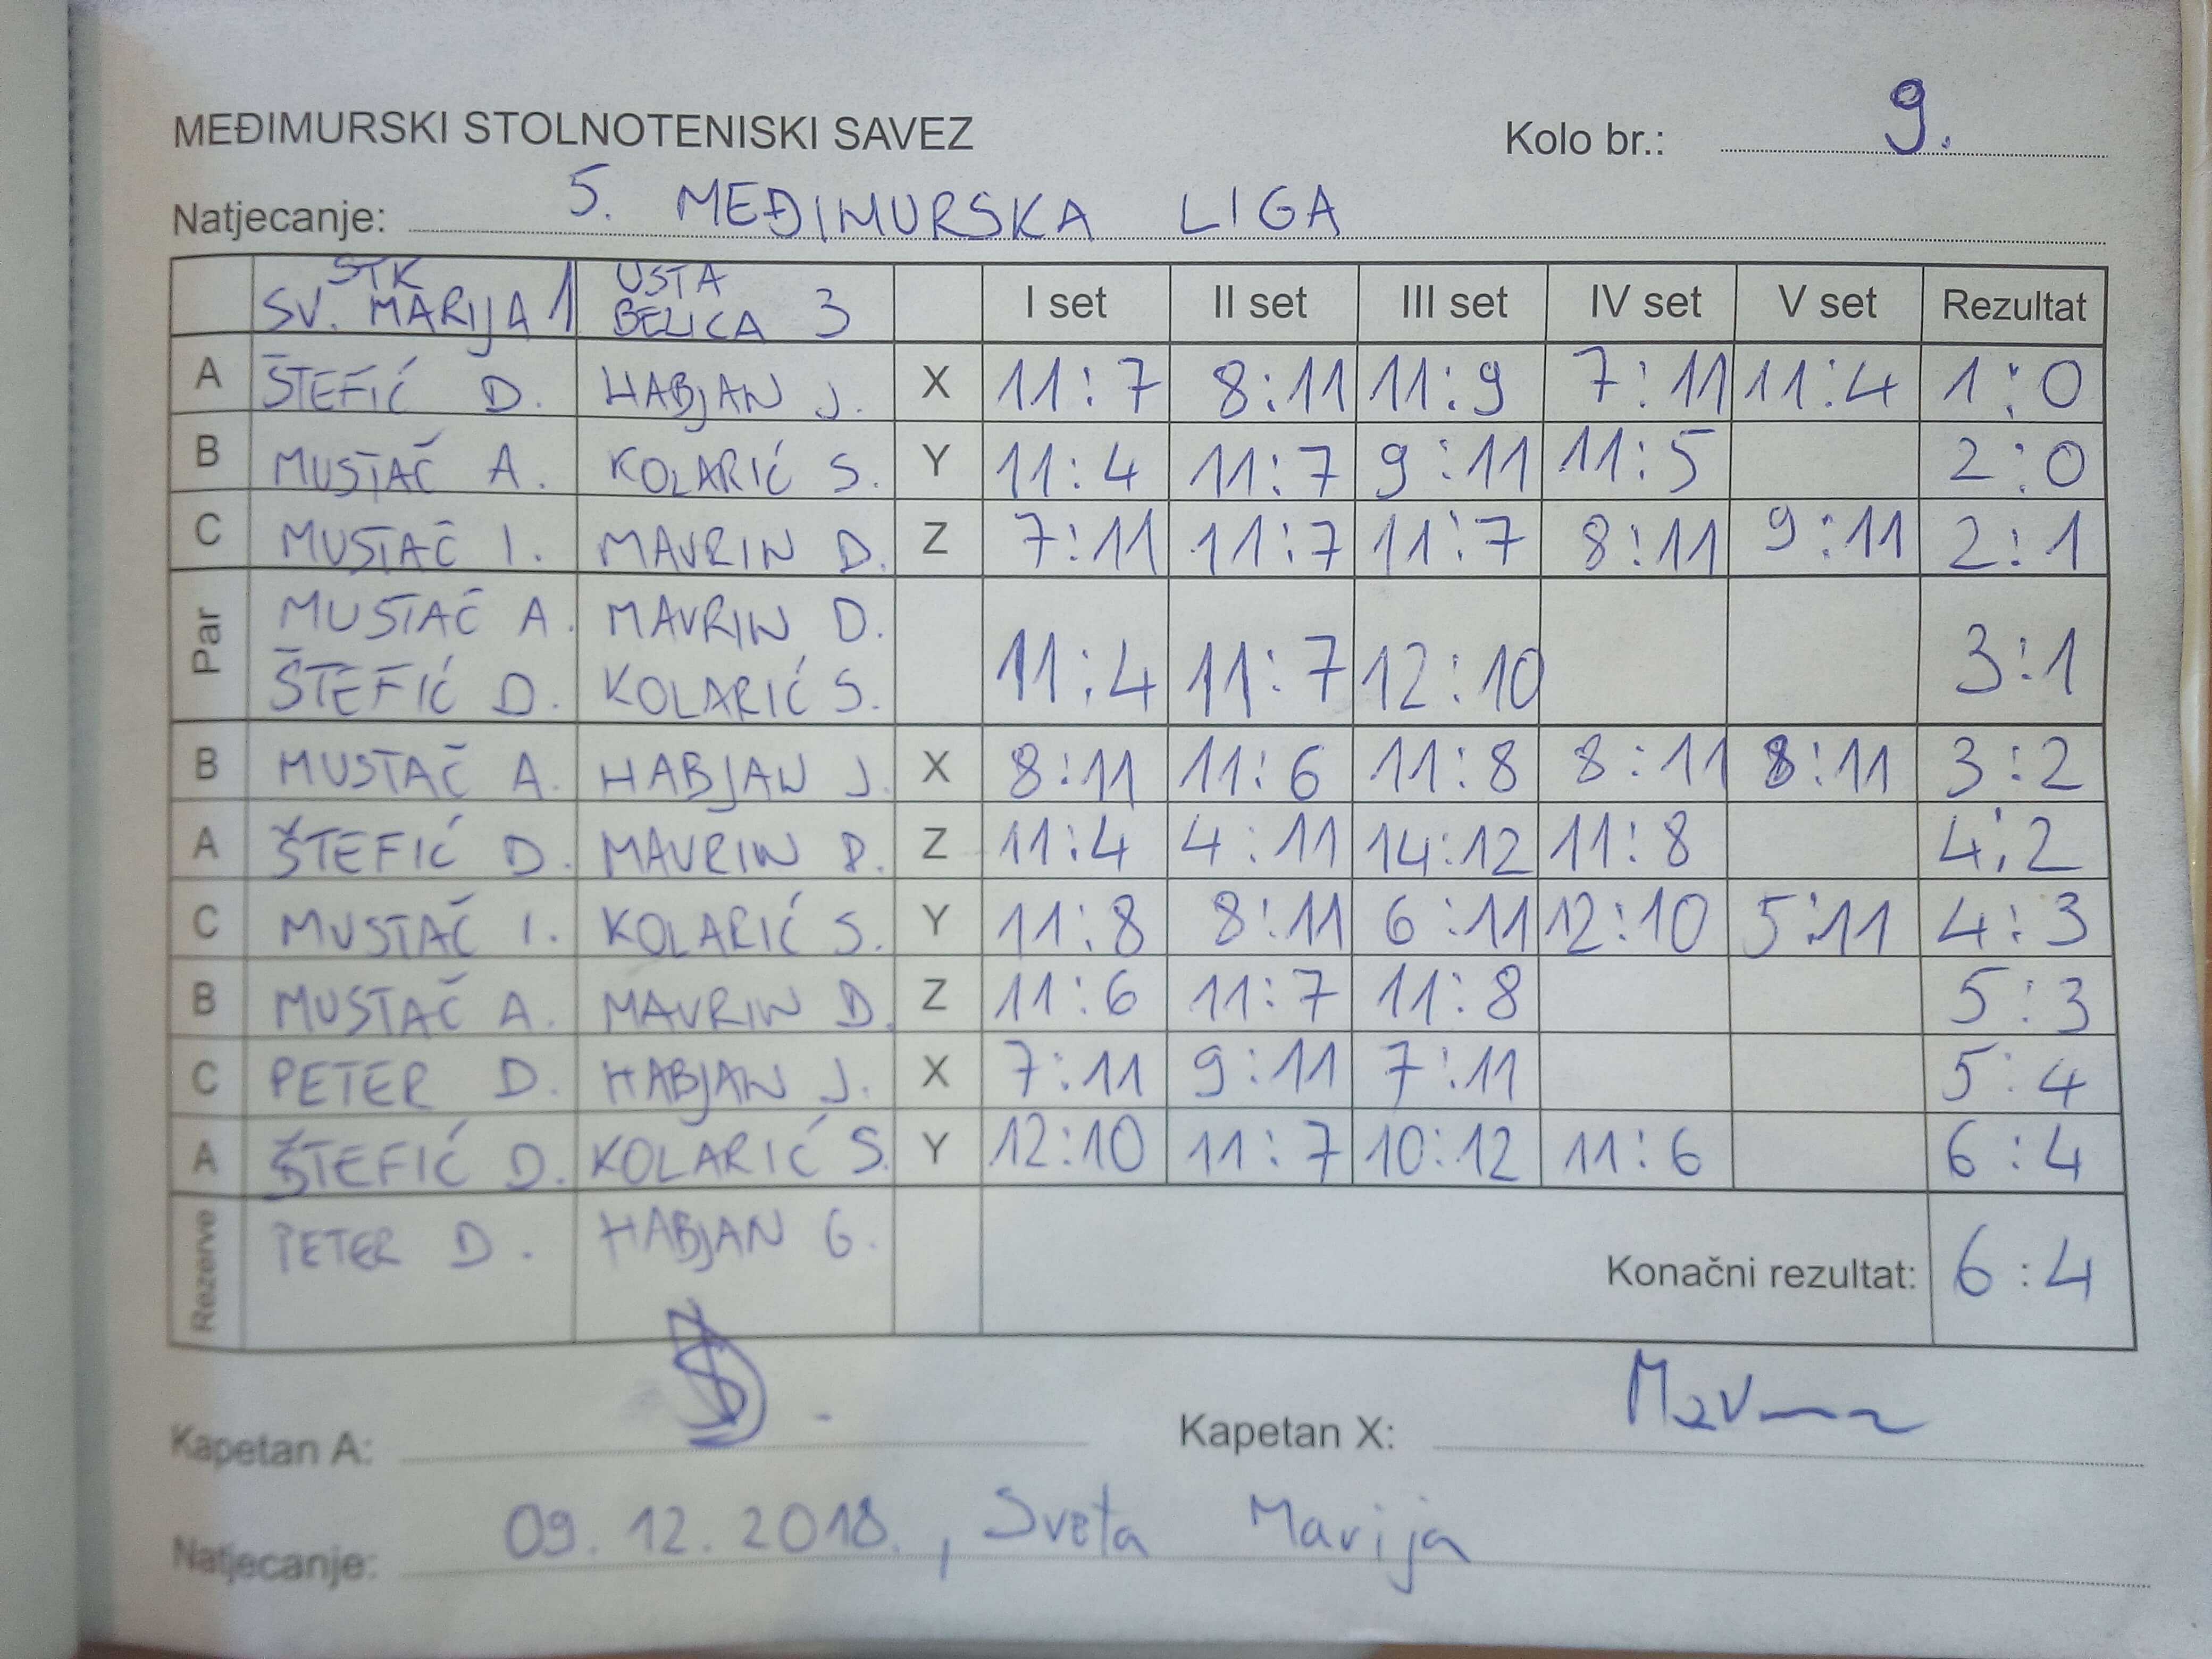 MEĐIMURSKI STOLNOTENISKI SAVEZ Kolo br.: 9.
Natjecanje: 5. MEĐIMURSKA LIGA
STK SV. MARIJA 1 USTA BELICA 3 I set II set III set IV set V set Rezultat
A ŠTEFIĆ D. HABJAN J. X 11:7 8:11 11:9 7:11 11:4 1:0
B MUSTAČ A. KOLARIĆ S. Y 11:4 11:7 9:11 11:5 2:0
C MUSTAČ I. MAVRIN D. Z 7:11 11:7 11:7 8:11 9:11 2:1
Par MUSTAČ A. MAVRIN D.
ŠTEFIĆ D. KOLARIĆ S. 11:4 11:7 12:10 3:1
B MUSTAČ A. HABJAN J. X 8:11 11:6 11:8 8:11 8:11 3:2
A ŠTEFIĆ D. MAVRIN D. Z 11:4 4:11 14:12 11:8 4:2
C MUSTAČ I. KOLARIĆ S. Y 11:8 8:11 6:11 12:10 5:11 4:3
B MUSTAČ A. MAVRIN D. Z 11:6 11:7 11:8 5:3
C PETER D. HABJAN J. X 7:11 9:11 7:11 5:4
A ŠTEFIĆ D. KOLARIĆ S. Y 12:10 11:7 10:12 11:6 6:4
Rezerve PETER D. HABJAN G.
Konačni rezultat: 6:4
Kapetan A: Kapetan X:
Natjecanje: 09.12.2018., Sveta Marija